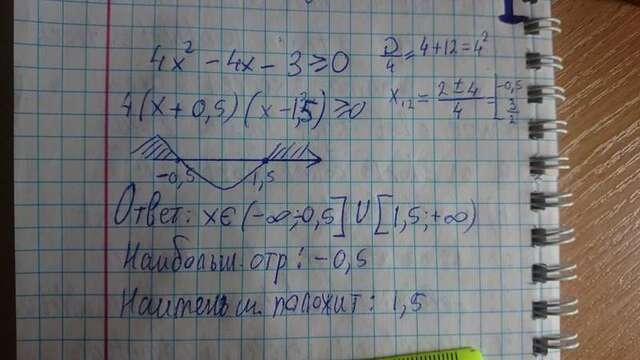 4x² - 4x - 3 ≥ 0
D/4 = 4 + 12 = 4²
4(x + 0,5)(x - 1,5) ≥ 0
x₁,₂ = (2 ± 4)/4 = [-0,5; 3/2
-0,5 1,5
Ответ: x∈(-∞;-0,5] U [1,5;+∞)
Наибольш. отр: -0,5
Наименьш. положит: 1,5